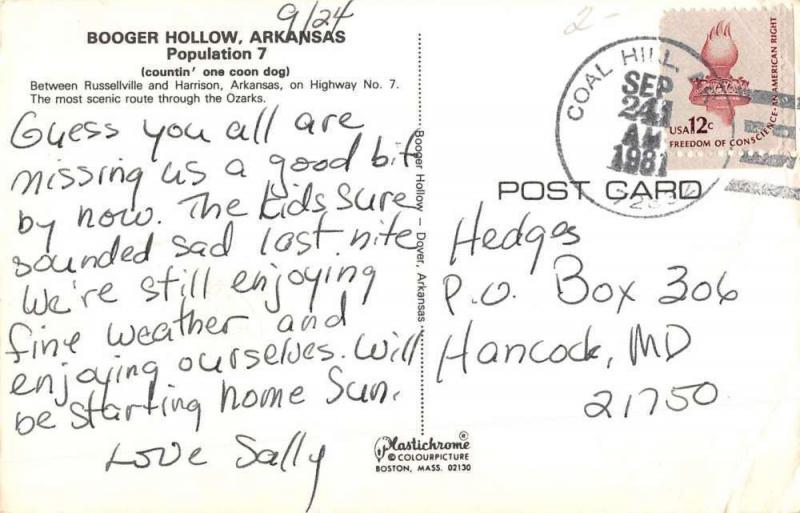 9/24
BOOGER HOLLOW, ARKANSAS
Population 7
(countin' one coon dog)
Between Russellville and Harrison, Arkansas, on Highway No. 7.
The most scenic route through the Ozarks.
Guess you all are
missing us a good bit
by now. The kids sure
sounded sad last nite
We're still enjoying
fine weather and
enjoying ourselves. Will
be starting home Sun.
Love Sally
Booger Hollow – Dover, Arkansas
Plastichrome®
© COLOURPICTURE
BOSTON, MASS. 02130
2-
COAL HILL,
SEP
24
AM
1981
USA 12c
FREEDOM OF CONSCIENCE-AN AMERICAN RIGHT
POST CARD
Hedges
P.O. Box 306
Hancock, MD
21750